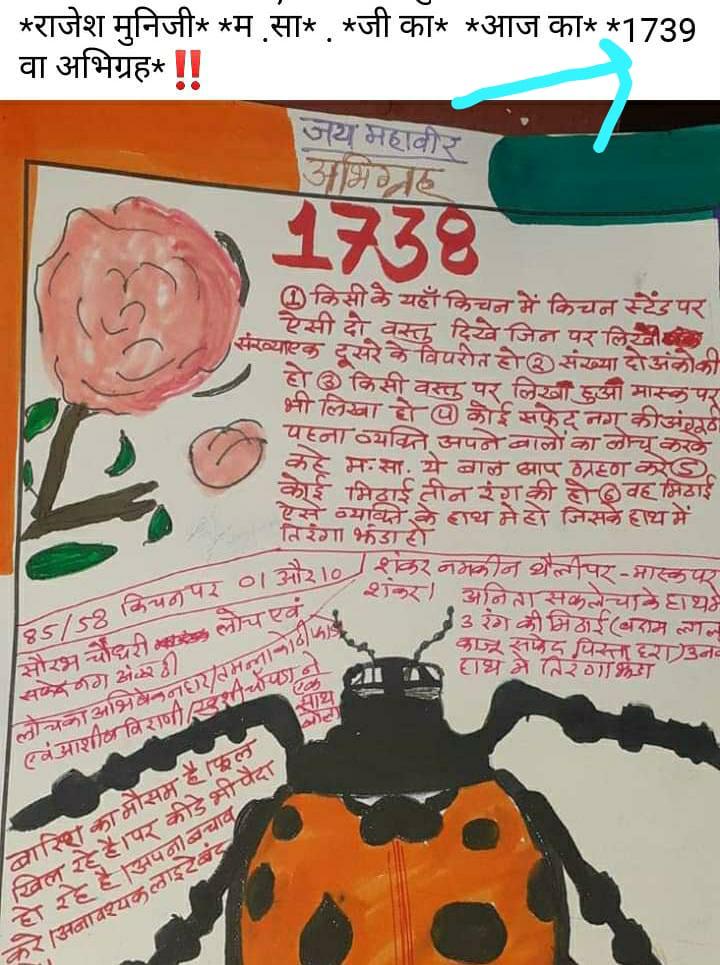 *राजेश मुनिजी* *म .सा* . *जी का* *आज का* *1739
वा अभिग्रह* ‼️
जय महावीर
अभिग्रह
1738
① किसी के यहाँ किचन में किचन स्टेंड पर
ऐसी दो वस्तु दिखे जिन पर लिखी
संख्या एक दूसरे के विपरीत हो ② संख्या दो अंको की
हो ③ किसी वस्तु पर लिखा हुआ मास्क पर
भी लिखा हो ④ कोई सफेद नग की अंगूठी
पहना व्यक्ति अपने बालों का लोच करके
कहे म.सा. ये बाल आप ग्रहण करे ⑤
कोई मिठाई तीन रंग की हो ⑥ वह मिठाई
ऐसे व्यक्ति के हाथ मे हो जिसके हाथ में
तिरंगा झंडा हो
85/58 किचन पर 01 और 10
सौरभ चौधरी लोच एवं
सफेद नग अंगूठी
लोच का अभिषेक नाहर/तमन्ना कोठीफोडा
एवं आशीष विराणी/खुशी चोपडा ने
एक
साथ
शंकर नमकीन थैली पर - मास्क पर
शंकर।
अनिता सकलेचा के हाथ में
3 रंग की मिठाई (बदाम लाल
काजू सफेद पिस्ता हरा) उनके
हाथ मे तिरंगा झंडा
बारिश का मौसम है। फूल
खिल रहे है। पर कीडे भी पैदा
हो रहे है। अपना बचाव
करे। अनावश्यक लाइटे बंद